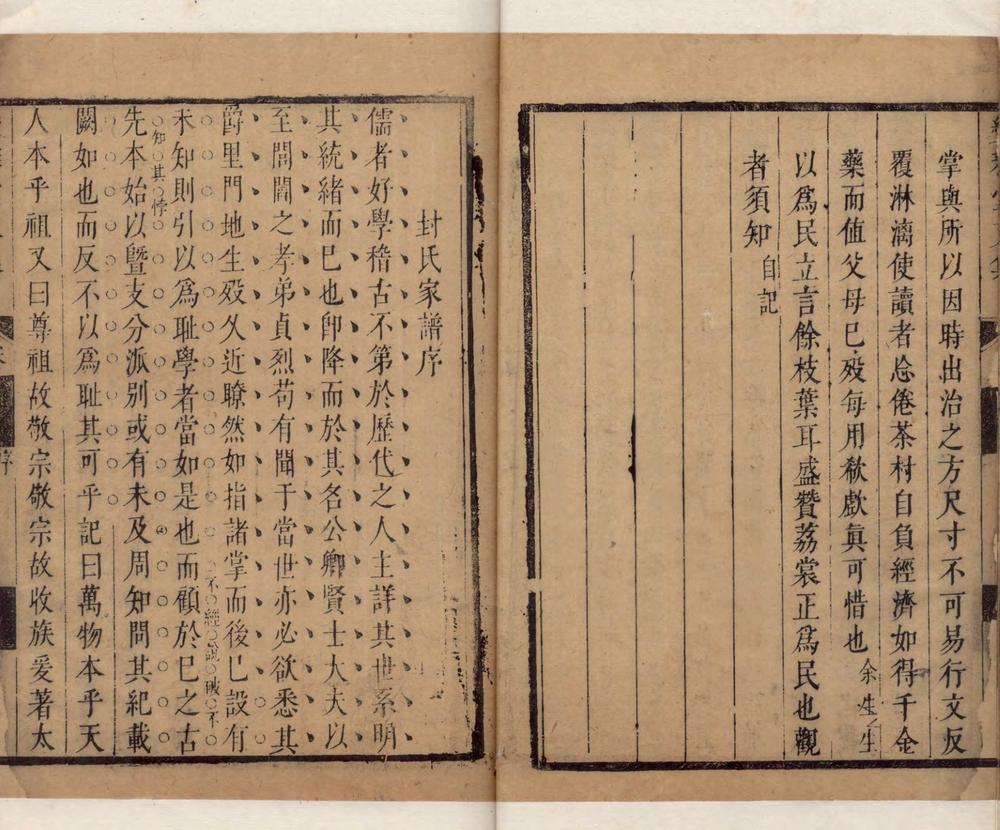 掌與所以因時出治之方尺寸不可易行文反
覆淋漓使讀者忘倦茶村自負經濟如得千金
藥而値父母已歿每用欷歔眞可惜也余生生
以爲民立言餘枝葉耳盛贊荔裳正爲民也觀
者須知自記
封氏家譜序
儒者好學稽古不第於歷代之人主詳其世系明
其統緒而已也卽降而於其名公卿賢士大夫以
至閭閻之孝弟貞烈苟有聞于當世亦必欲悉其
爵里門地生歿久近瞭然如指諸掌而後已設有
不經說破不
未知則引以爲恥學者當如是也而顧於已之古
知其悖
先本始以曁支分派別或有未及周知問其紀載
闕如也而反不以爲恥其可乎記曰萬物本乎天
人本乎祖又曰尊祖故敬宗敬宗故收族爰著太
序